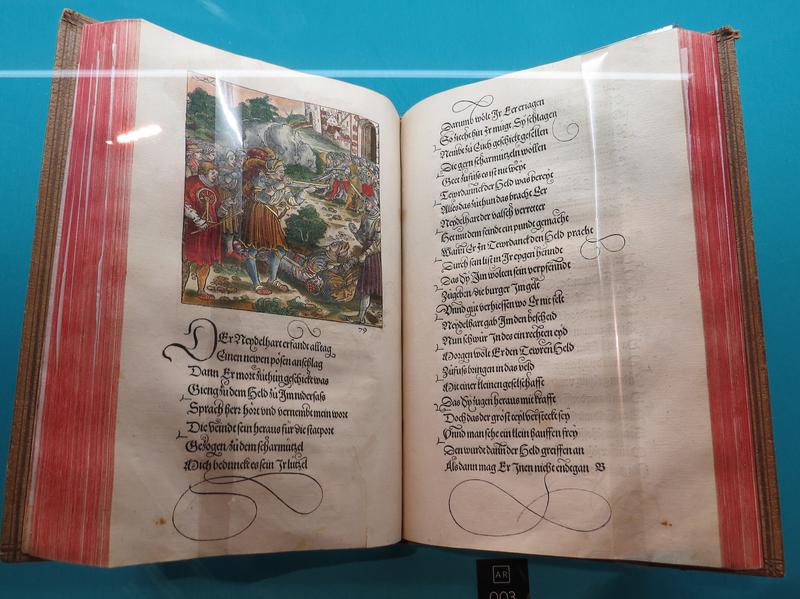 79
DEr Neydelhart erfandt alltag
Einen newen pösen anschlag
Dann Er mort zůthůn geschickt was
Gieng zů dem Held zů Im nidersass
Sprach herr hört vnd vernembt mein wort
Die veindt sein heraus für die statport
Gezogen zů dem scharmützel
Mich beduncket es sein Ir lützel
Darumb wölt Ir Eer eriagen
So ziecht hin Ir mügt Sy schlagen
Nembt zů Euch geschickt gesellen
Die gern scharmutzeln wöllen
Geet zůfůss es ist nit weyt
Tewrdannck der Held was bereyt
Alles das zůthun das bracht Eer
Neydelhart der valsch verreter
Het mit dem feindt ein pundt gemacht
Wann Er In Tewrdanck den Held pracht
Durch sein list in Ir eygen henndt
Das Sy Im wolten sein verpfenndt
Zůgeben die burger Im gelt
Vnnd gůt verhiessen wo Er nit felt
Neydelhart gab Im den bescheid
Nun schwůr In des ein rechten eyd
Morgen wölt Er den Tewren Held
Zůfůss bringen in das veld
Mit einer kleinen geselschafft
Das Sy zugen heraus mit krafft
Doch das der gröst teyl versteckt sey
Vnnd man seh ein klein hauffen frey
Den wurde dann der Held greiffen an
Als dann mag Er Inen nicht endtgan B
AR
003